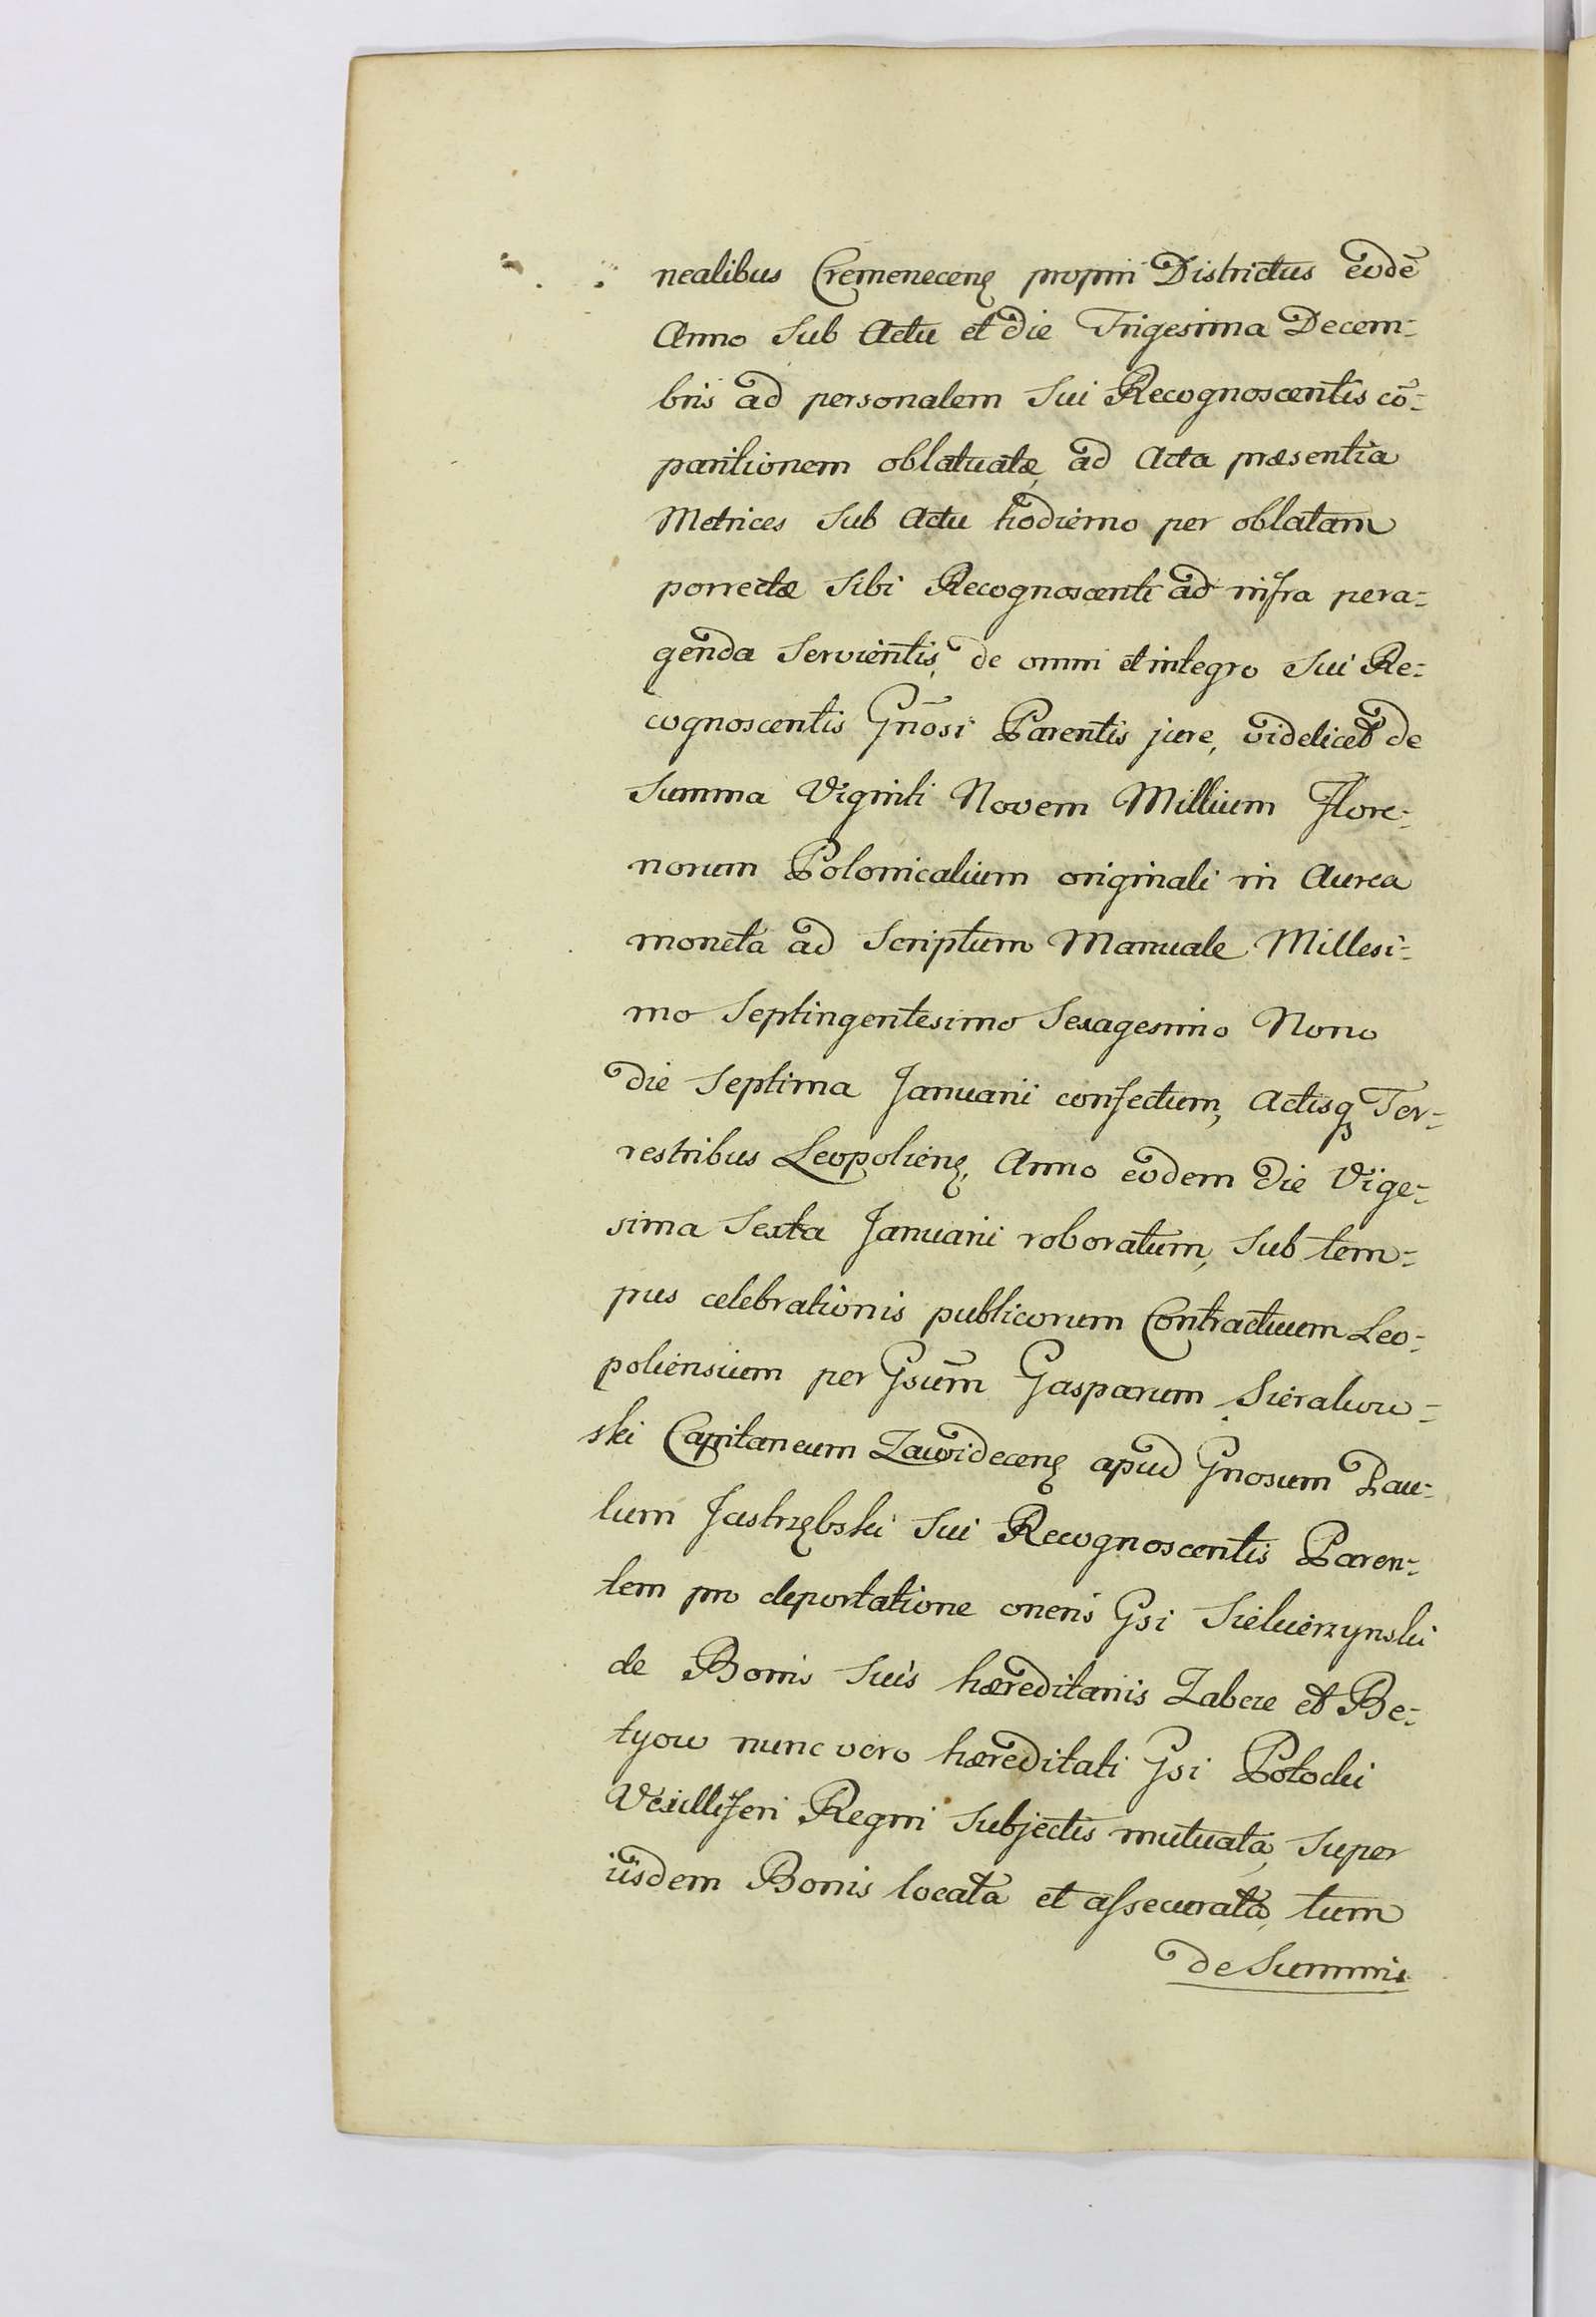 nealibus Cremenecenȩ proprii Districtus eodē
Anno Sub Actu et die Trigesima Decem=
bris ad personalem Sui Recognoscentis cō=
paritionem oblatuatæ, ad Acta præsentia
Metrices Sub Actu hodierno per oblatam
porrectæ Sibi Recognoscenti ad infra pera=
genda Servientis, de omni et integro Sui Re=
cognoscentis Gnōsi Parentis jure, videlicet de
Summa Viginti Novem Millium Flore=
norum Polonicalium originali in Aurea
moneta ad Scriptum Manuale Millesi=
mo Septingentesimo Sexagesimo Nono
die Septima Januarii confectum, Actisqꝫ Ter=
restribus Leopolienȩ, Anno eodem die Vige=
sima Sexta Januarii roboratum, Sub tem=
pus celebrationis publicorum Contractuum Leo=
poliensium per Gsūm Gasparum Sierakow=
ski Capitaneum Zawidecenȩ apud Gnosum Pau=
lum Jastrzębski Sui Recognoscentis Paren=
tem pro deportatione oneris Gsi Siekierzynski
de Bonis Suis hæreditariis Zabcze et Be=
tyow nunc vero hæreditati Gsi Potocki
Vexilliferi Regni Subjectis mutuata, Super
iisdem Bonis locata et assecurata, tum
de Summis